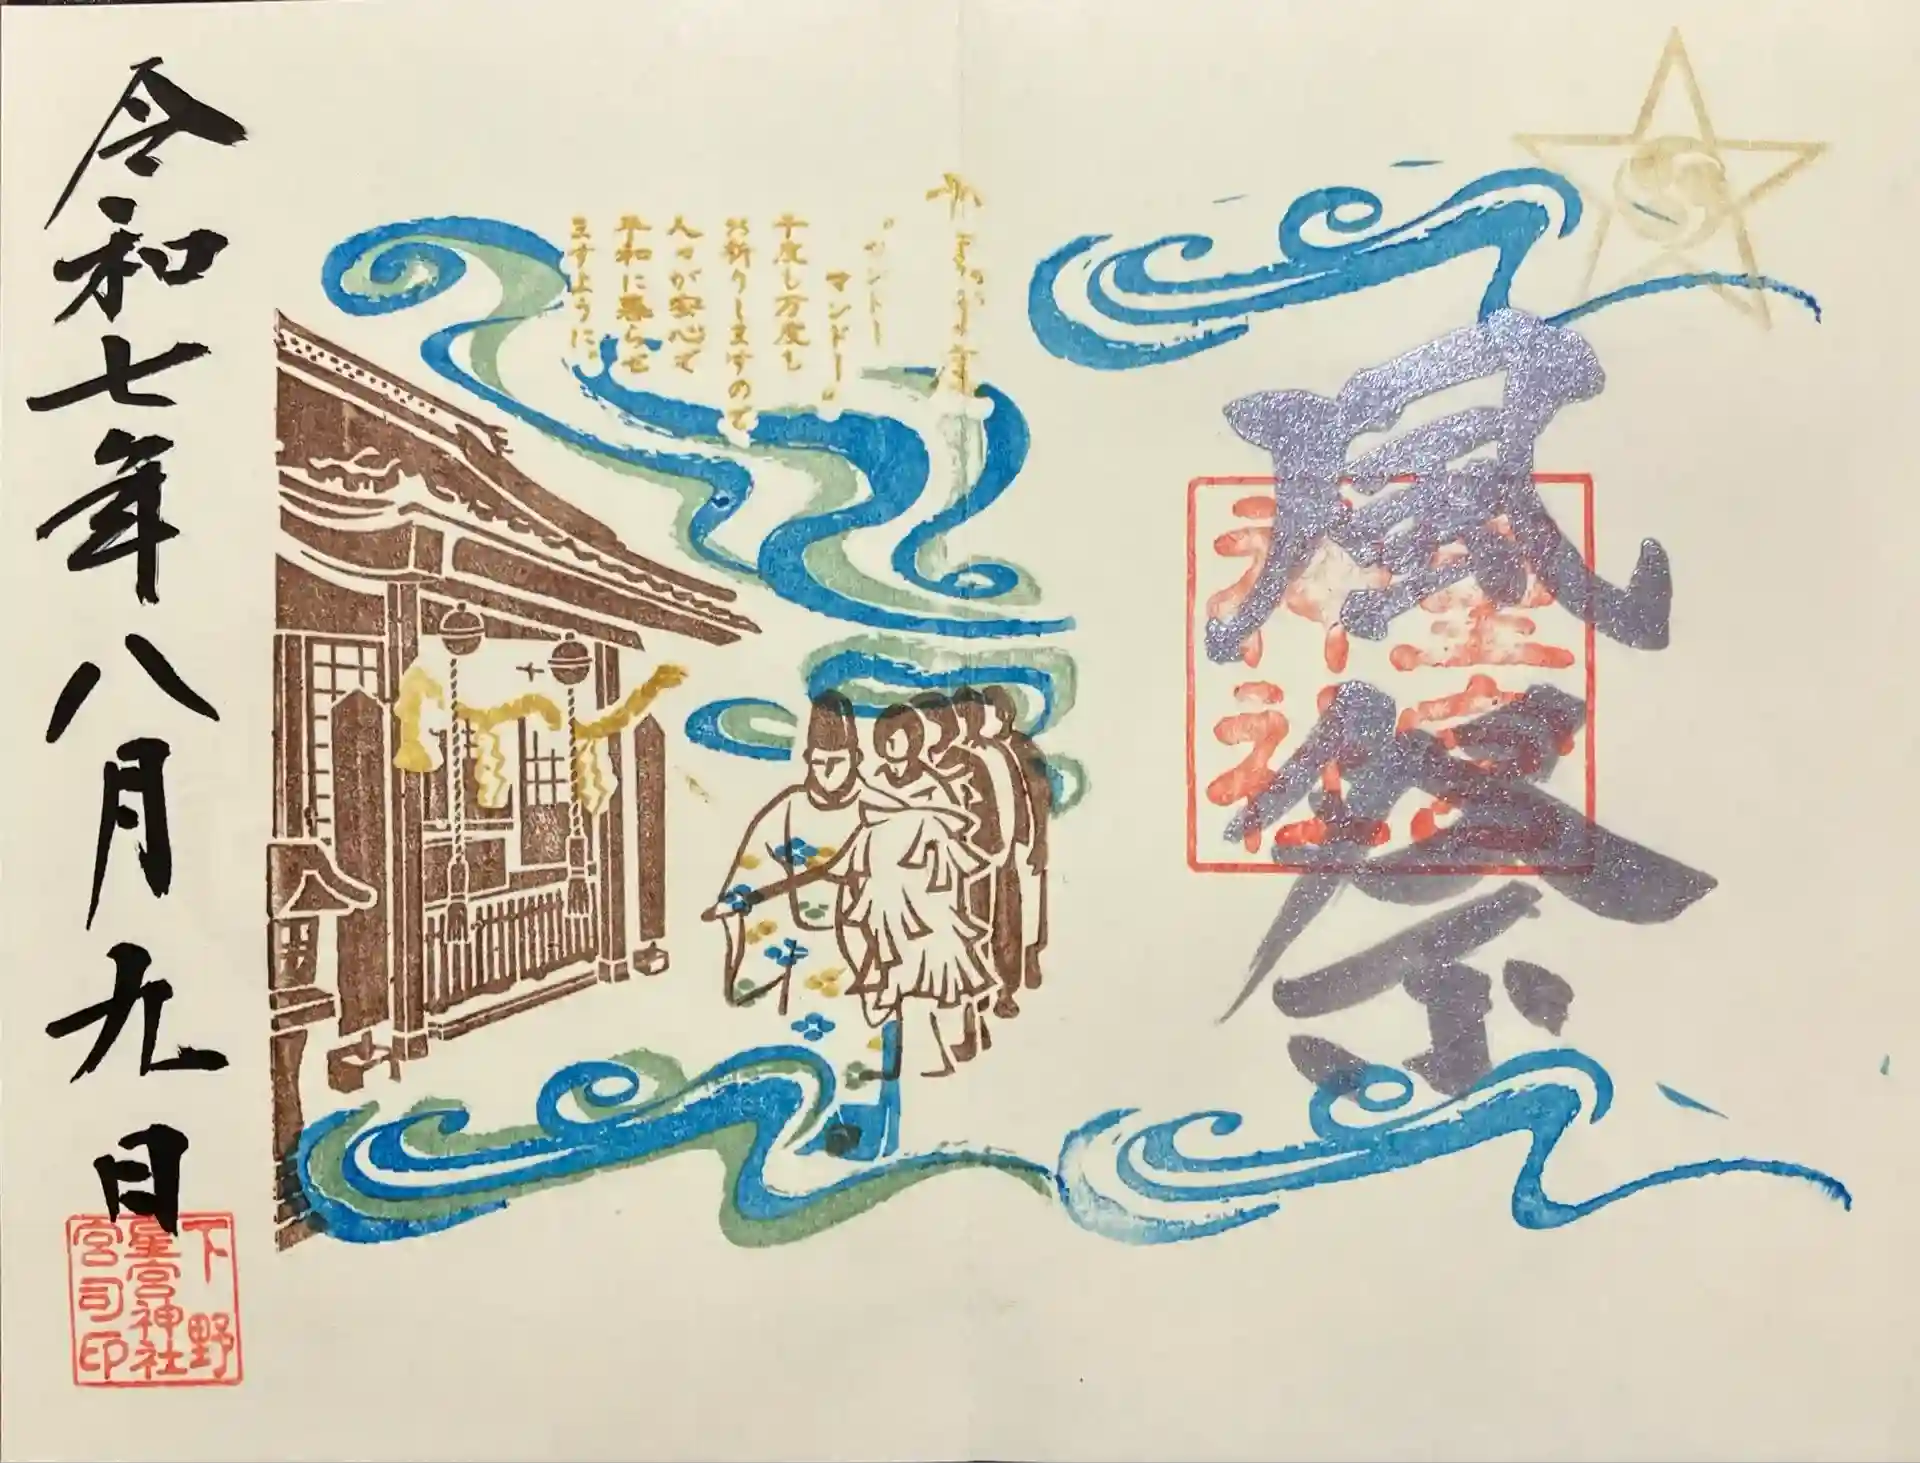 風祭
星宮
神社
“センドー
マンドー”
千度も万度も
お祈りしますので
人々が安心で
平和に暮らせ
ますように。
令和七年八月九日
下野
星宮神社
宮司印